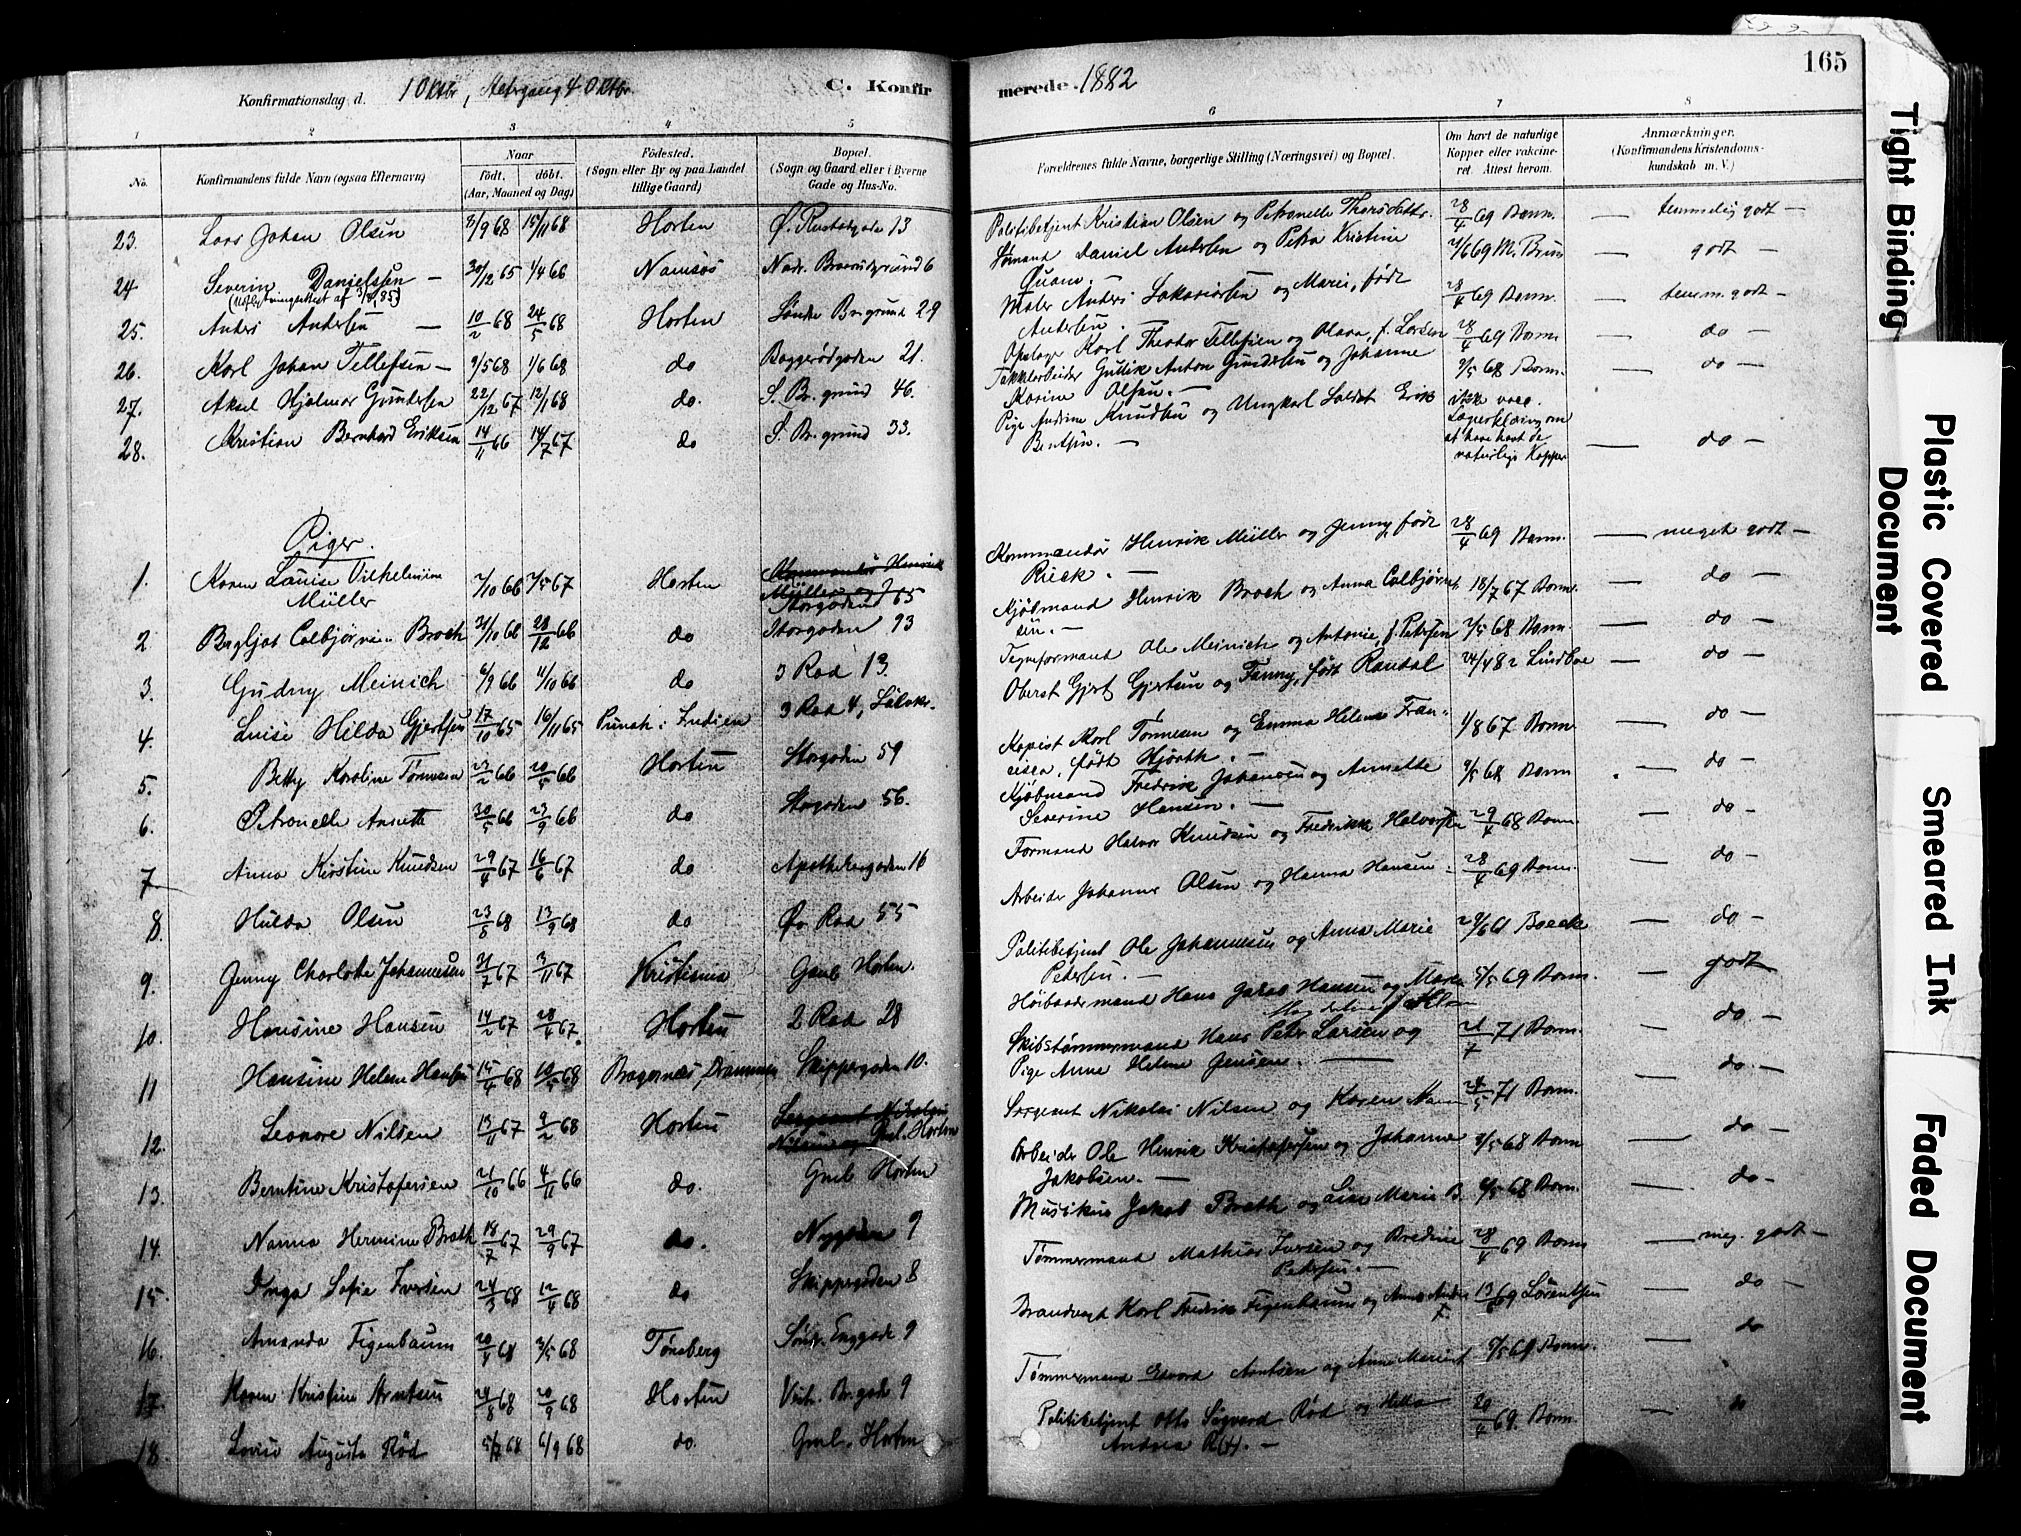 165
Konfirmationsdag d. 1 Oktbr, Altergang 4 Oktbr. C. Konfir merede. 1882
1 2 3 4 5 6 7 8
No. Konfirmandens fulde Navn (ogsaa Efternavn)
Naar
Født. døbt.
(Aar, Maaned og Dag)
Fødested.
(Sogn eller By og paa Landet
tillige Gaard)
Bopæl.
(Sogn og Gaard eller i Byerne
Gade og Hus-No.
Forældrenes fulde Navne, borgerlige Stilling (Næringsvei) og Bopæl.
Om havt de naturlige
Kopper eller vakcine-
ret. Attest herom.
Anmærkninger.
(Konfirmandens Kristendoms-
kundskab m. V.)
23. Lars Johan Olsen 3/9 68 15/11 68 Horten Ø. 13 Politibetjent Kristian Olsen og Petronelle Thorsdattr. 28/4 69 Bonn. — temmelig godt —
24 Severin Danielssen — 30/12 65 1/4 66 Namsos 6 Daniel Andersen og Petra Kristine 69 M. Bruun — godt —
Quam. —
25. Anders Andersen — 10/2 68 24/5 68 Horten Søndre Br.grund 29 Maler Anders Sakariasen og Marie, født 28/4 69 Bonn. — temm. godt —
Andersen. —
26. Karl Johan Tellefsen — 9/5 68 1/6 68 do Baggerødgaden 21. Opslager Karl Theodor Tellefsen og Olava, f. Larsen 28/4 69 Bonn. — do —
27. Aksel Hjalmar Gundersen 22/12 67 12/1 68 do. S. Br. grund 46. Gullik Anton Gundersen og Johanne 9/5 68 Bonn. — do —
Marine Olsen. —
28. Kristian Bernhard Eriksen 14/11 66 14/7 67 do S. Br. grund 33. Pige Andrine Knudsen og Ungkarl Soldat Erik
Bentsen. —
ikke vacc.
Lægerklæring om
at have havt de
naturlige Kopper — do —
Piger.
1. Karen Louise Vilhelmine 7/10 66 67 Horten Kommandør Henrik Kommandør Henrik Müller og Jenny, født 28/4 69 Bonn. — meget godt —
Müller Müller og J Rieck. —
Storgaden 65
2. Bergljot Colbjørnsen Broch 31/10 66 28/12 66 do Storgaden 93 Kjøbmand Henrik Broch og Anna Colbjørn- 18/7 67 Bonn. — do —
sen. —
3. Gudny Meinich 6/9 66 11/10 66 do 3 Rad 13. Tegneformand Ole Meinich og Antonie, f. Petersen 7/5 68 Bonn. — do —
4. Luise Hilda Gjertsen 17/10 65 16/11 65 Punah i Indien 3 Rad 4, Oberst Gjert Gjertsen og Fanny, født Randal 24/4 82 Lindboe — do —
5. Betty Karoline Tønnesen 23/2 66 20/5 66 Horten Storgaden 59 Kopist Karl Tønnesen og Emma Helene Fran- 1/8 67 Bonn — do —
cisca, født Hjorth. —
6. Petronelle Annette 30/5 66 23/9 66 do Storgaden 56. Kjøbmand Fredrik Johansen og Annette 9/5 68 Bonn — do —
Severine Hansen. —
7 Anna Kristine Knudsen 29/4 67 16/6 67 do Apothekergaden 16 Formand Halvor Knudsen og Fredrikke Halvorsen 29/4 68 Bonn — do —
8. Hulda Olsen 23/8 68 13/9 68 do Øv. Rad 55 Arbeider Johannes Olsen og Hanna Hansen 28/4 69 Bonn. — do —
9. Jenny Charlotte Johannesen 31/7 67 3/11 67 Kristiania Gml. Horten. Politibetjent Ole Johannesen og Anna Marie Boeck — do —
Pedersen. —
10. Hansine Hansen 14/2 67 28/4 67. Horten 2 Rad 28 Høibaadsmand Hans Jakob Hansen og Maren 5/5 69 Bonn. — godt
11 Hansine Helene Hansen 15/4 68 10/5 68 Bragernæs, Drammen Skippergaden 10. Skibstømmermand Hans Peter Larsen og 21/7 71 Bonn. — do —
Pige Anne Helene Jensen. —
12. Leonore Nilsen 13/11 67 9/2 68 Horten Sergeant Nikolai Sergeant Nikolai Nilsen og Karen 24/5 71 Bonn. — do —
Nilsen og Gml. Horten
13. Berntine Kristofersen 21/10 66 4/11 66 do. Gml. Horten Arbeider Ole Henrik Kristofersen og Johanne 9/5 68 Bonn — do —
Jakobsen. —
14. Nanna Hermine Brath 18/7 67 29/9 67 do. Nygaden 9 Musikus Jakob Brath og Lise Marie B. 9/5 68 Bonn. — do —
15. Inga Sofie Iversen 24/3 68 12/4 68 do Skippergaden 8 Tømmermand Mathias Iversen og Bredine 28/4 69 Bonn — meg. godt —
Petersen. —
16. Amanda Figenbaum 20/4 68 3/5 68 Tønsberg Søndr. Enggade 9 Karl Fredrik Figenbaum og Anna 69 Lørentsen — do —
17. Karen Kristine Arntsen 24/8 68 20/9 68 Horten Vestr. Br.gade 9 Tømmermand Edvard Arntsen og Anne Marie Bonn. — do
18. Lovise Augusta Rød 68 6/9 68 do. Gml. Horten Politibetjent Otto Sigvard Rød og Hilda 20/4 69. Bonn. — do
Andrea R(x). —
Tight Binding
Plastic Covered
Document
Smeared Ink
Faded Document